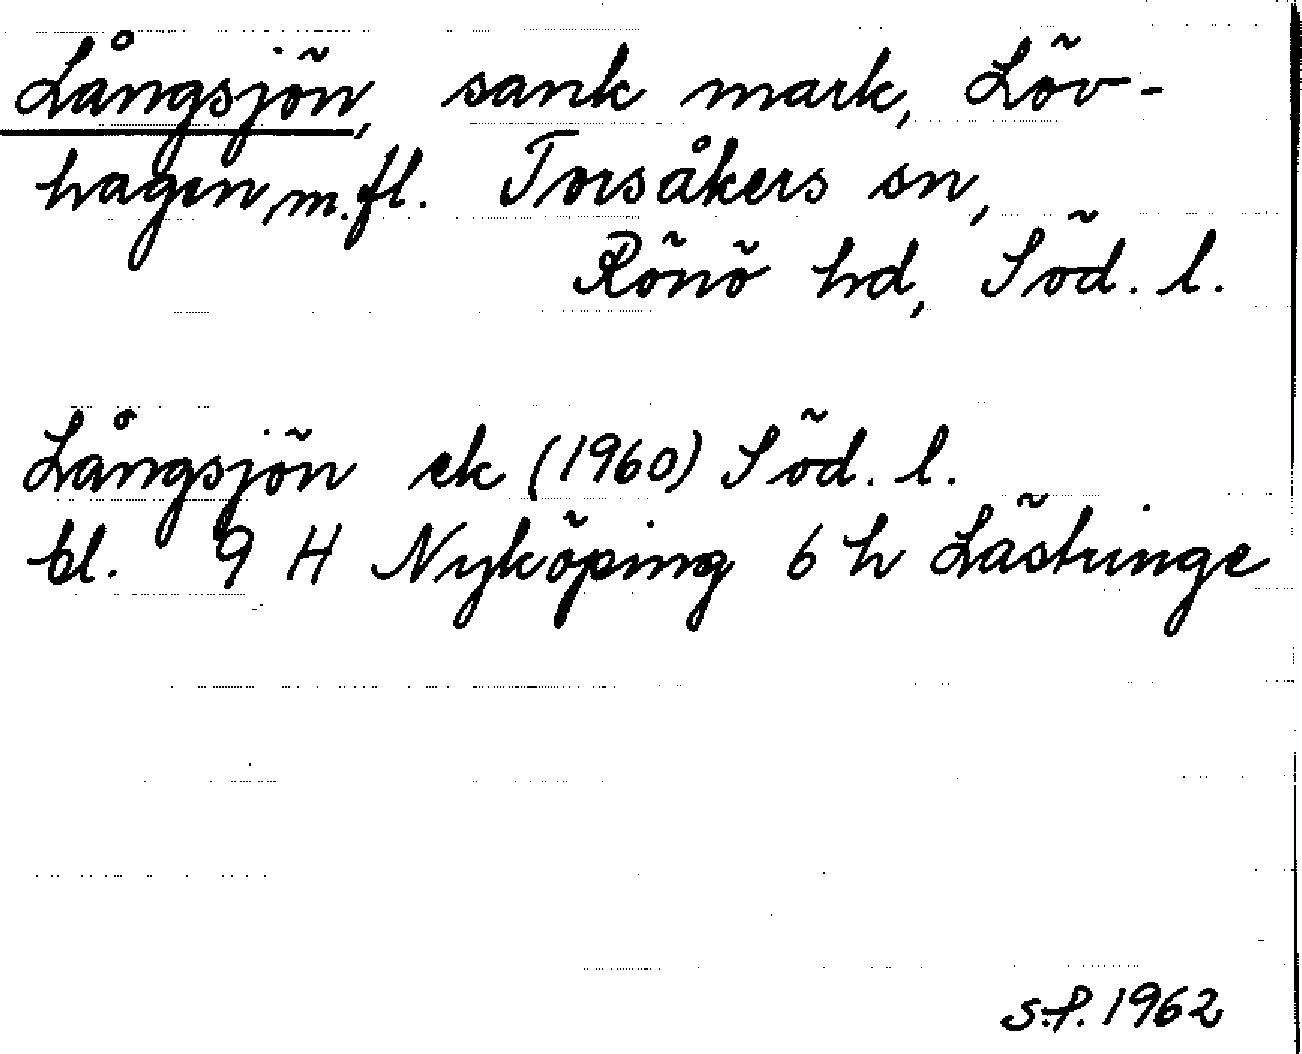 Långsjön, sank mark, Löv-
hagen, m.fl. Torsåkers sn,
Rönö hd, Söd. l.
Långsjön ek (1960) Söd. l.
bl. 9 H Nyköping 6 h Lästringe
S.P. 1962